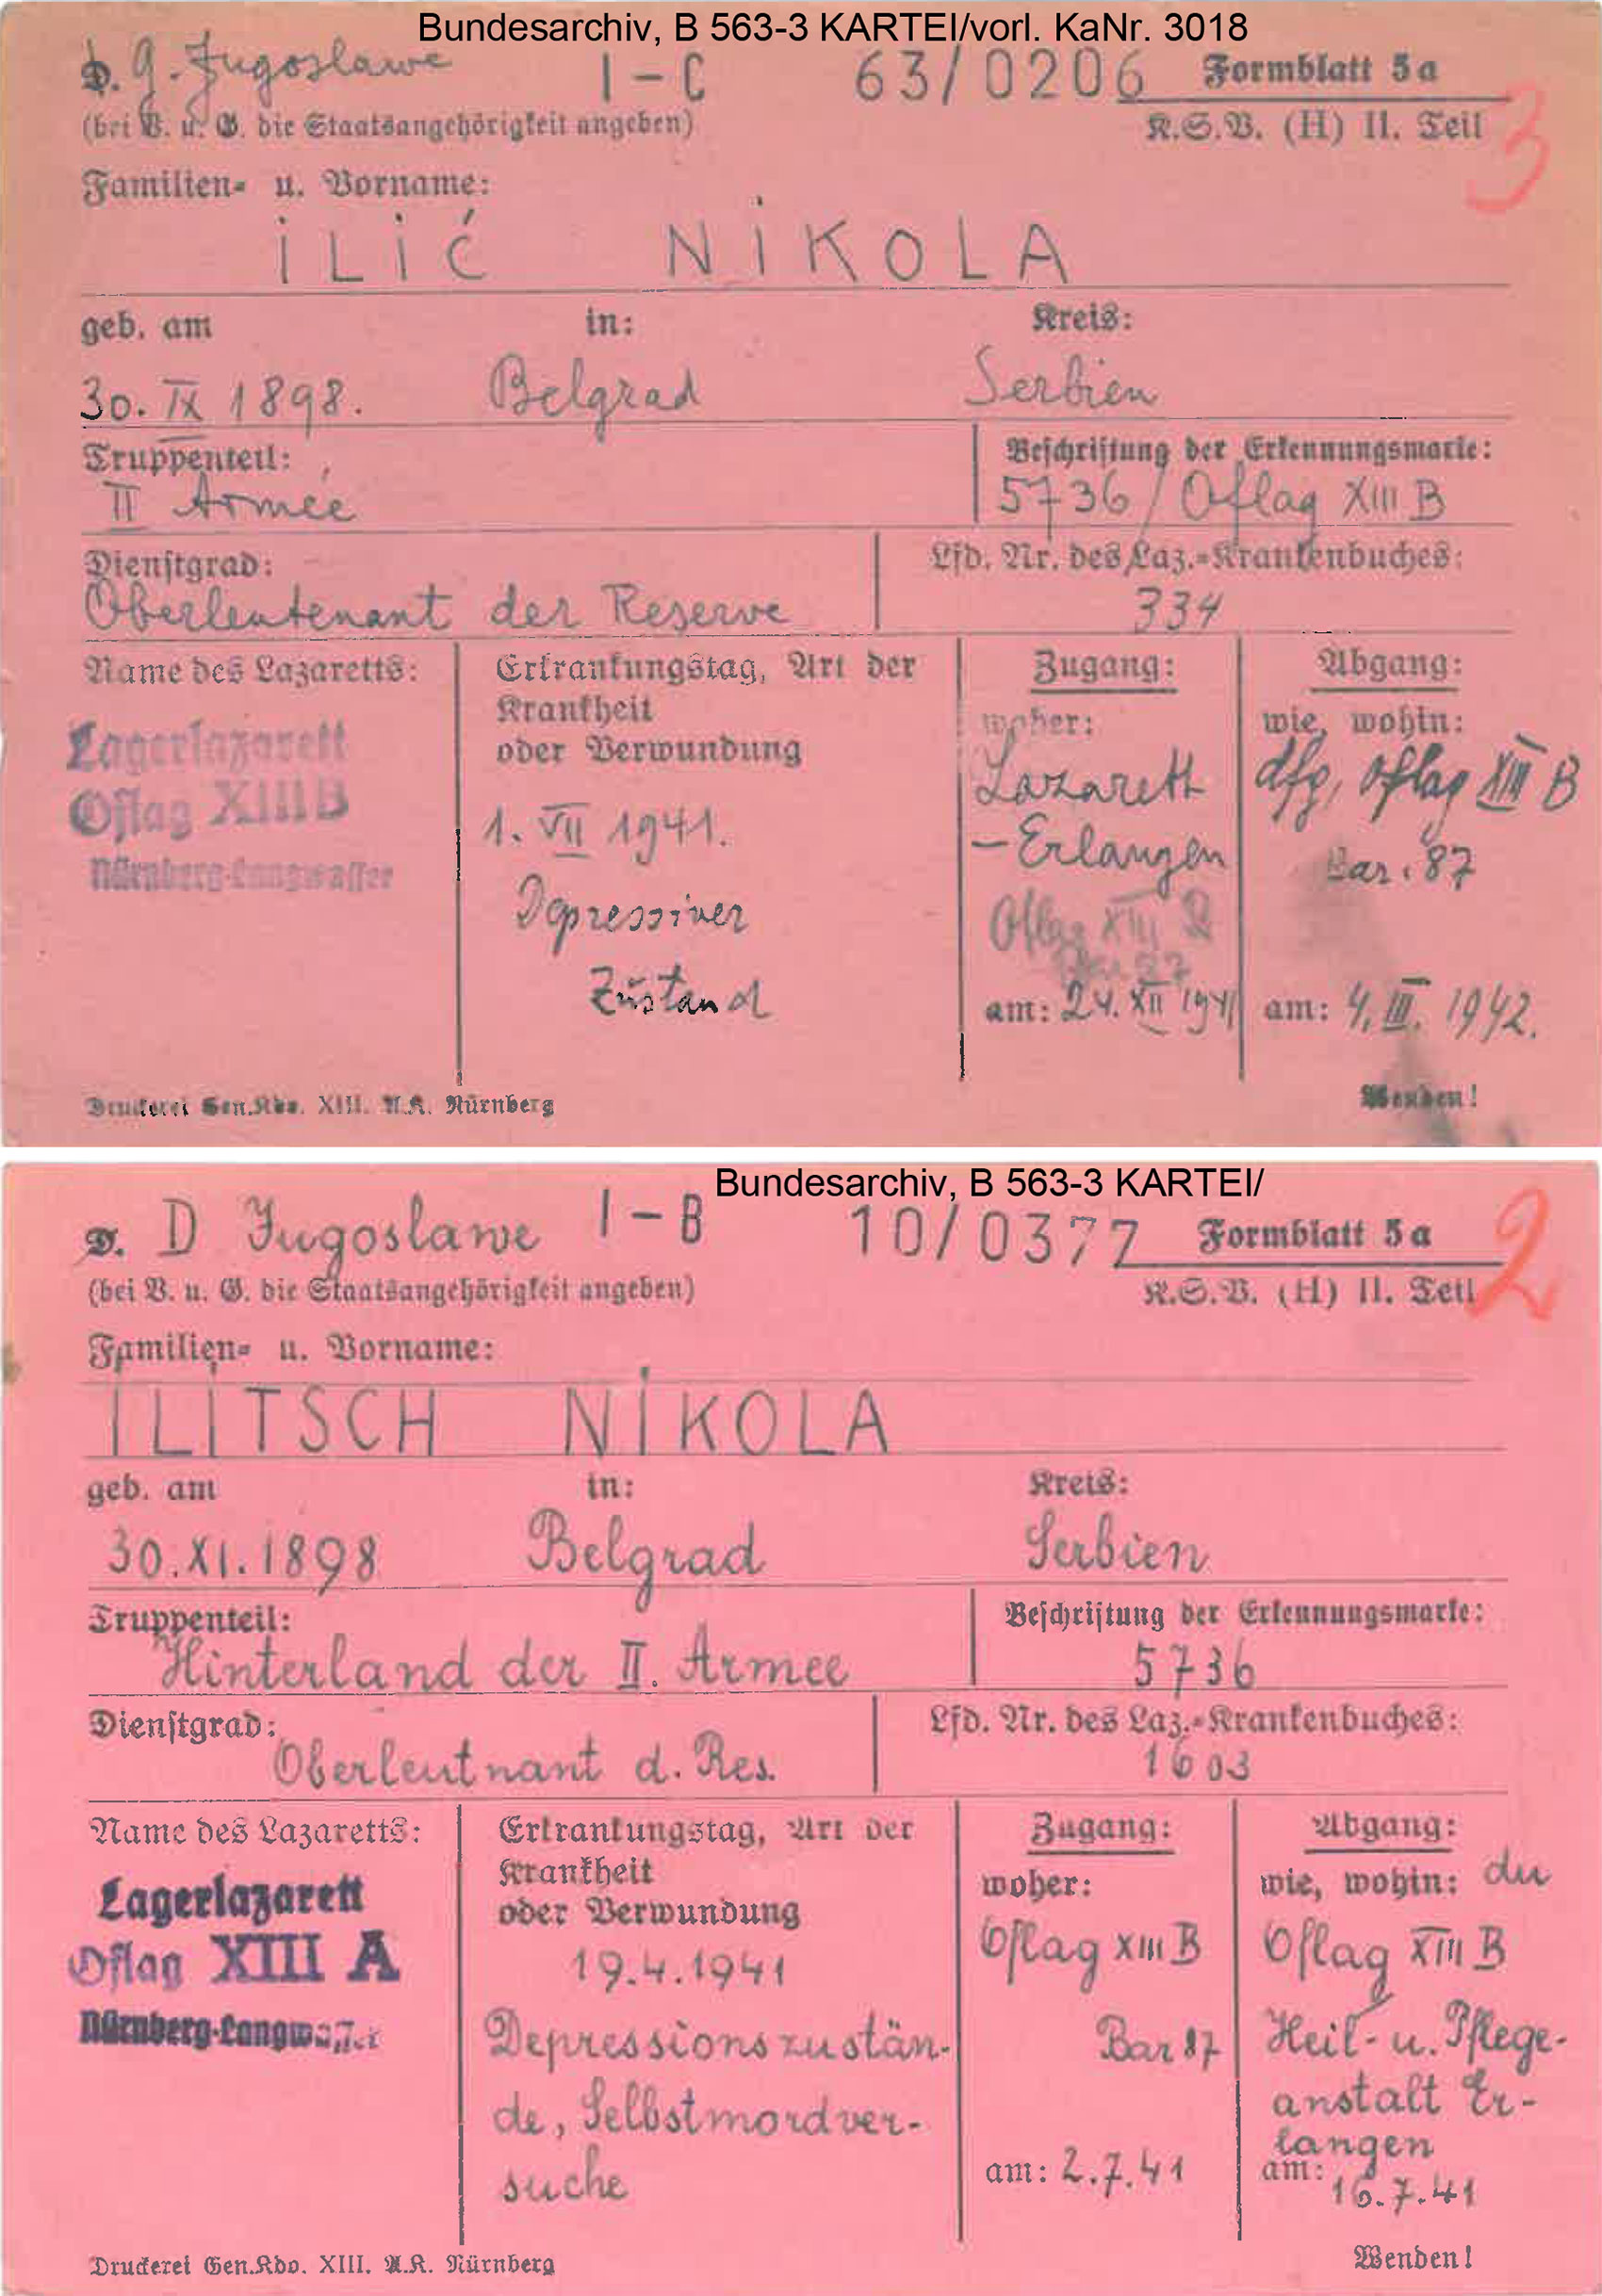 Bundesarchiv, B 563-3 KARTEI/vorl. KaNr. 3018
D. g. Jugoslawe I-C 63/0206 Formblatt 5a
(bei V. u. G. die Staatsangehörigkeit angeben) K.S.V. (H) II. Teil 3
Familien- u. Vorname:
ILIĆ NIKOLA
geb. am in: Kreis:
30. IX 1898. Belgrad Serbien
Truppenteil: Beschriftung der Erkennungsmarke:
II Armée 5736 / Oflag XIII B
Dienstgrad: Lfd. Nr. des Laz.-Krankenbuches:
Oberleutenant der Reserve 334
Name des Lazaretts: Erkrankungstag, Art der Krankheit oder Verwundung Zugang: Abgang:
woher: wie, wohin:
Lagerlazarett
Oflag XIII B
Nürnberg-Langwasser
1. VII 1941.
Depressiver
Zustand
Lazarett
-Erlangen
Oflag XIII B
am: 24. XII 1941
dfg, Oflag XIII B
Bar. 87
am: 4. III. 1942.
Druckerei Gen.Kdo. XIII. A.K. Nürnberg Wenden!
Bundesarchiv, B 563-3 KARTEI/
D. D Jugoslawe I-B 10/0377 Formblatt 5a
(bei V. u. G. die Staatsangehörigkeit angeben) K.S.V. (H) II. Teil 2
Familien- u. Vorname:
ILITSCH NIKOLA
geb. am in: Kreis:
30.XI.1898 Belgrad Serbien
Truppenteil: Beschriftung der Erkennungsmarke:
Hinterland der II. Armee 5736
Dienstgrad: Lfd. Nr. des Laz.-Krankenbuches:
Oberleutnant d. Res. 1603
Name des Lazaretts: Erkrankungstag, Art der Krankheit oder Verwundung Zugang: Abgang:
woher: wie, wohin:
Lagerlazarett
Oflag XIII A
Nürnberg-Langwasser
19.4.1941
Depressionszustän-
de, Selbstmordver-
suche
Oflag XIII B
Bar 87
am: 2.7.41
Oflag XIII B
Heil- u. Pflege-
anstalt Er-
langen
am: 16.7.41
Druckerei Gen.Kdo. XIII. A.K. Nürnberg Wenden!